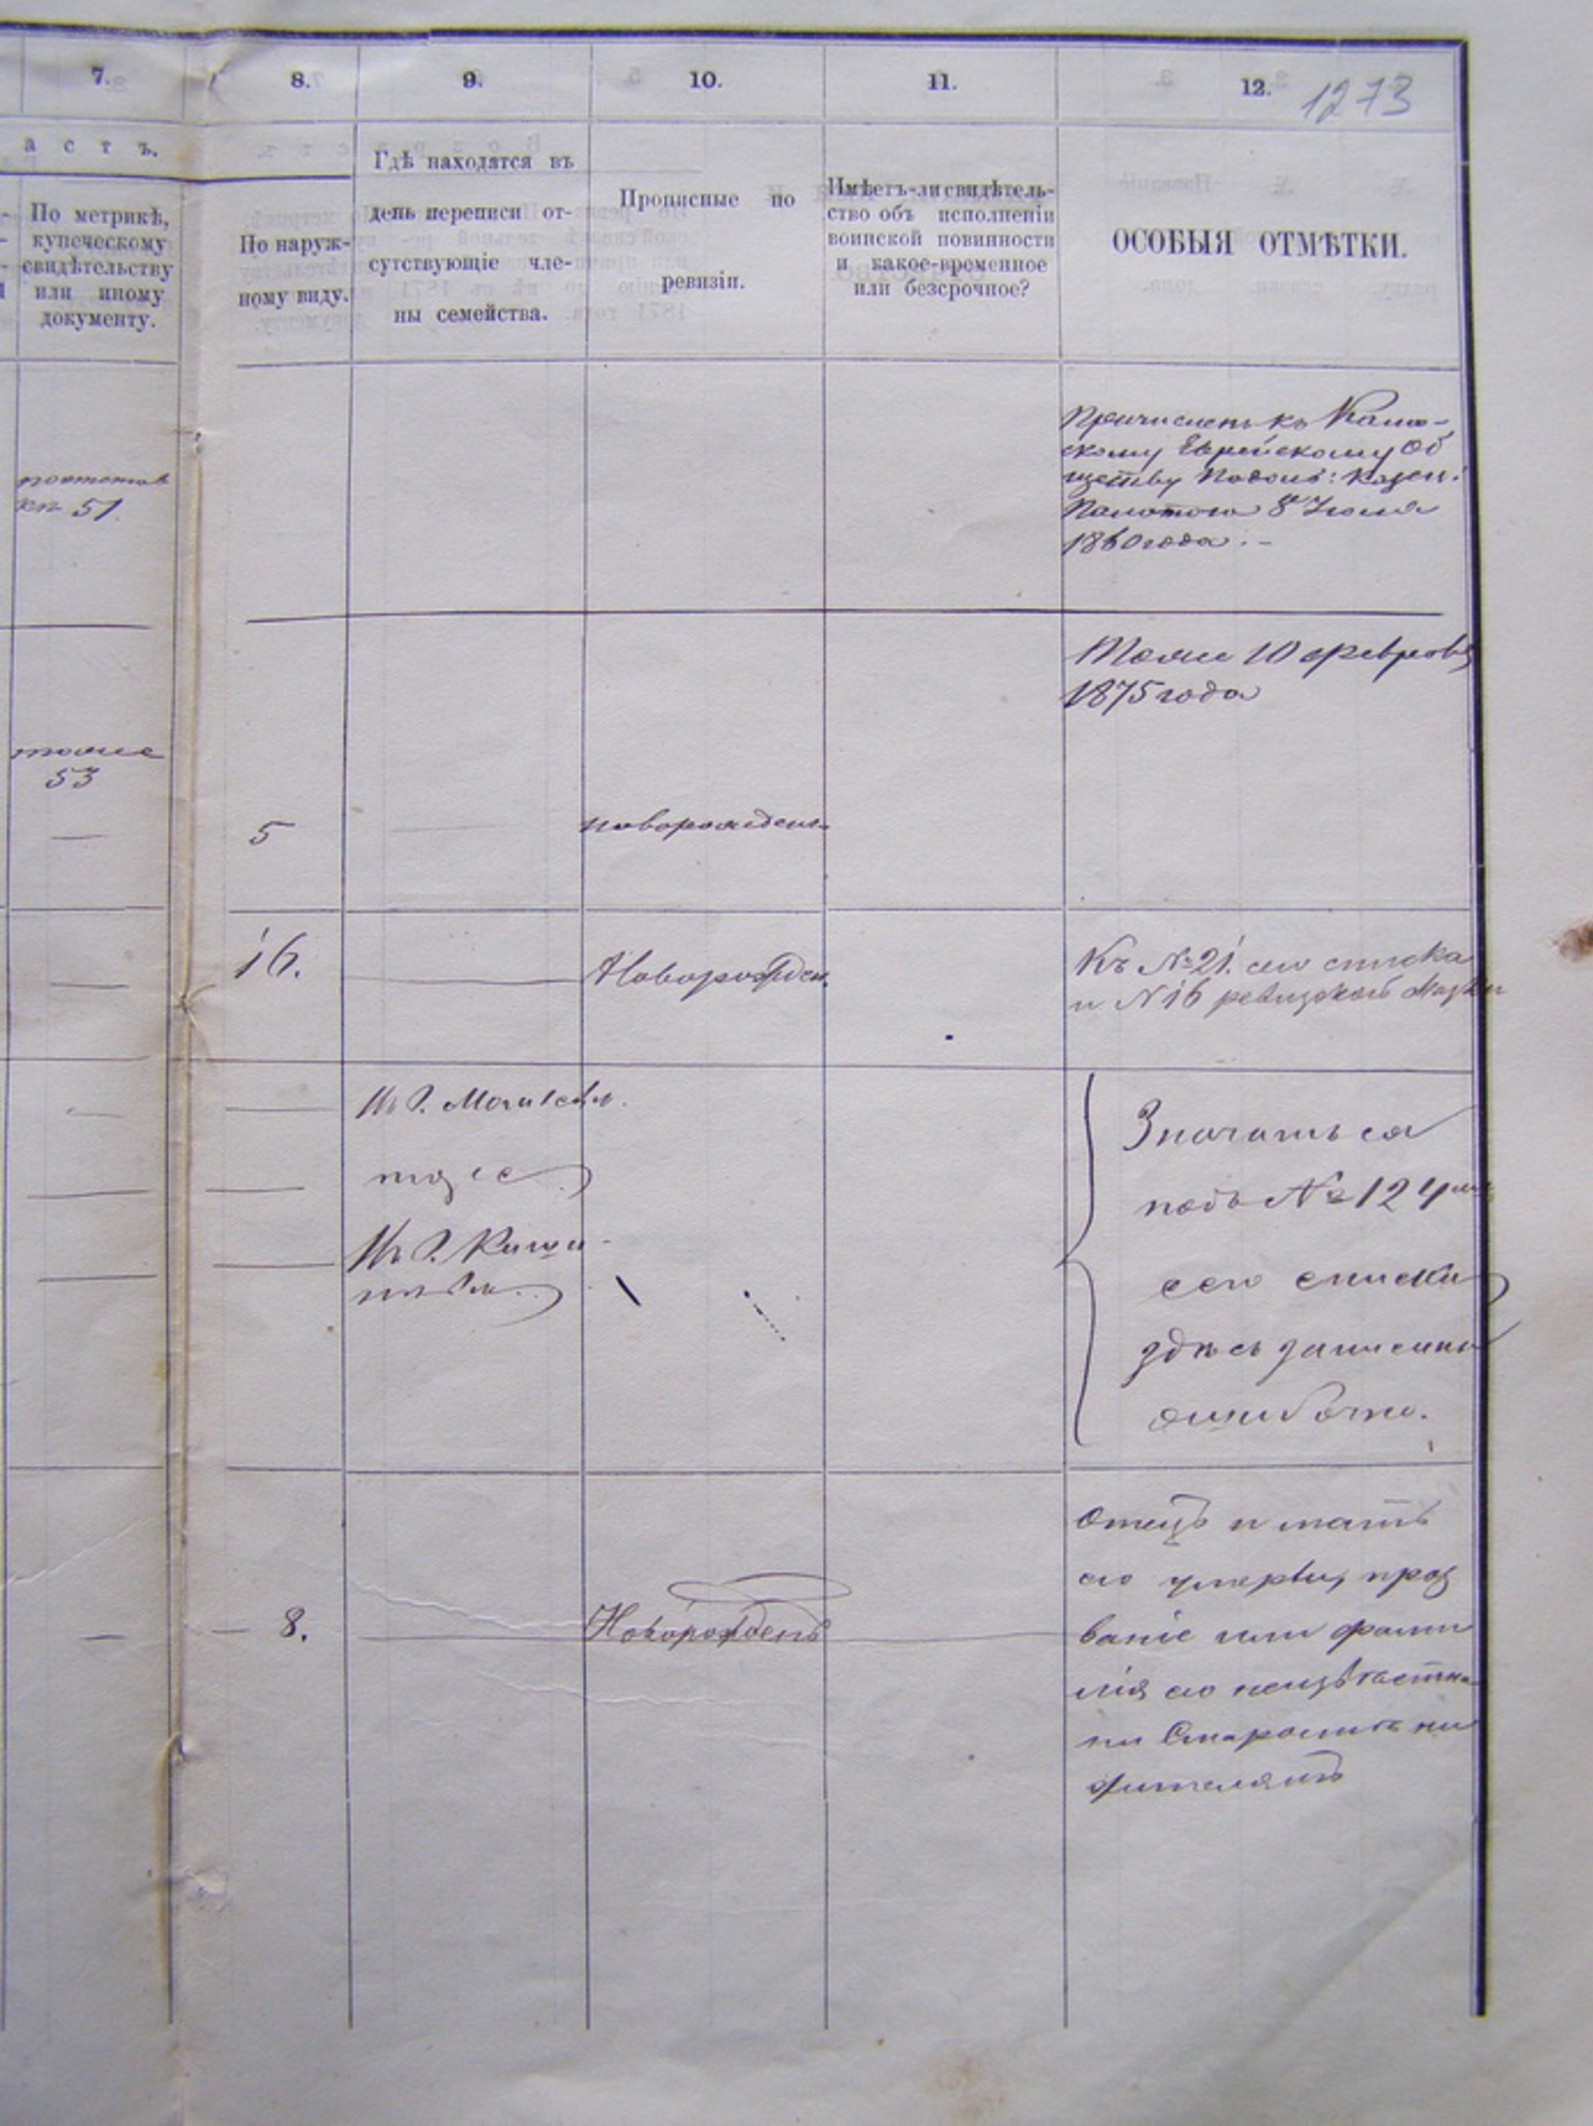 7.
8.
9.
10.
11.
12.
1273
а с т ъ.
По метрикѣ,
купеческому
свидѣтельству
или иному
документу.
По наруж-
ному виду.
Гдѣ находятся въ
день переписи от-
сутствующіе чле-
ны семейства.
Прописные по
ревизіи.
Имѣетъ-ли свидѣтель-
ство объ исполненіи
воинской повинности
и какое-временное
или безсрочное?
ОСОБЫЯ ОТМѢТКИ.
51
Причисленъ къ
скому Еврейскому Об
ществу Подоль: Казен:
Палатою 8 Іюля
1860 года. -
Тоже 10 февраля
1875 года
тоже
53
5
новорожден.
16.
Новорожден.
Къ № 21. сего списка
и № 16 ревизской
Въ Г. Могилевѣ.
тоже
Въ Г. Киши-
невѣ.
Значаться
подъ № 124
сего списка
здѣсь записаны
ошибочно.
8.
Новорожденъ
Отецъ и мать
его умерли, проз
ваніе или фами
лія его неизвѣстна
ни Старостѣ ни
жителямъ